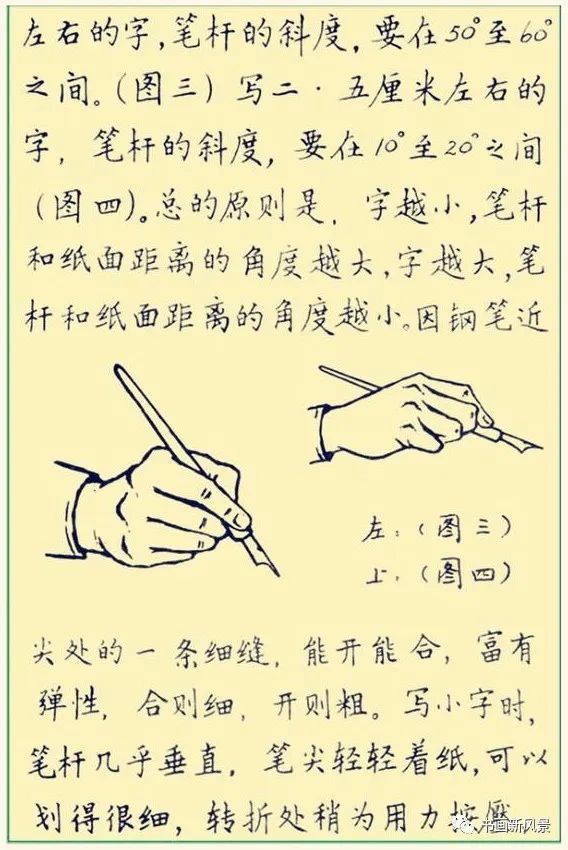 左右的字,笔杆的斜度,要在50°至60°
之间。(图三)写二·五厘米左右的
字,笔杆的斜度,要在10°至20°之间
(图四)。总的原则是,字越小,笔杆
和纸面距离的角度越大,字越大,笔
杆和纸面距离的角度越小。因钢笔近
左:(图三)
上:(图四)
尖处的一条细缝,能开能合,富有
弹性,合则细,开则粗。写小字时,
笔杆几乎垂直,笔尖轻轻着纸,可以
划得很细,转折处稍为用力按压
书画新风景